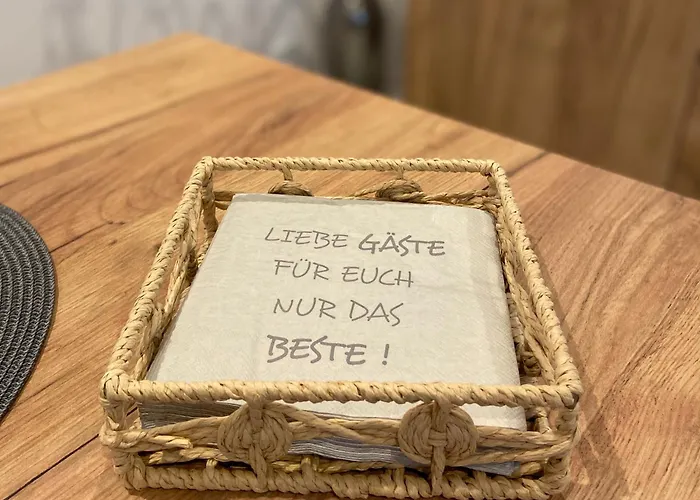 LIEBE GÄSTE
FÜR EUCH
NUR DAS
BESTE !